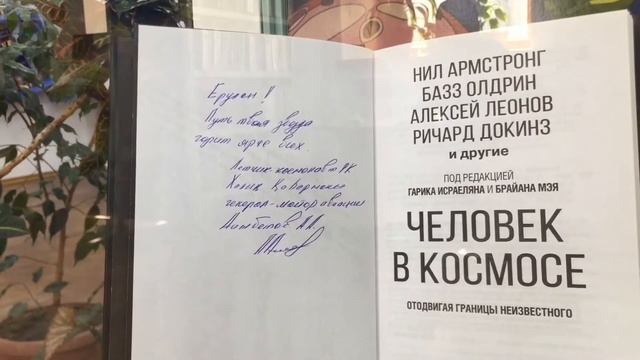 Ерулен!
Пусть твоя звезда
горит ярче всех.
Летчик-космонавт РК
Халик Каһарманы
генерал-майор авиации
Аимбетов А.А.
НИЛ АРМСТРОНГ
БАЗЗ ОЛДРИН
АЛЕКСЕЙ ЛЕОНОВ
РИЧАРД ДОКИНЗ
и другие
ПОД РЕДАКЦИЕЙ
ГАРИКА ИСРАЕЛЯНА И БРАЙАНА МЭЯ
ЧЕЛОВЕК
В КОСМОСЕ
ОТОДВИГАЯ ГРАНИЦЫ НЕИЗВЕСТНОГО